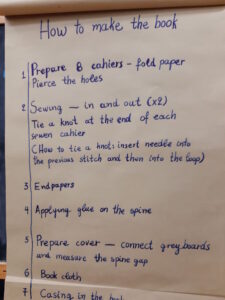 How to make the book
1 Prepare 8 cahiers - fold paper
Pierce the holes
2 Sewing - in and out (x2)
Tie a knot at the end of each
sewen cahier
(How to tie a knot: insert needle into
the previous stitch and then into the loop)
3 Endpapers
4 Applying glue on the spine
5 Prepare cover - connect grey boards
and measure the spine gap
6 Book cloth
7 Casing in the